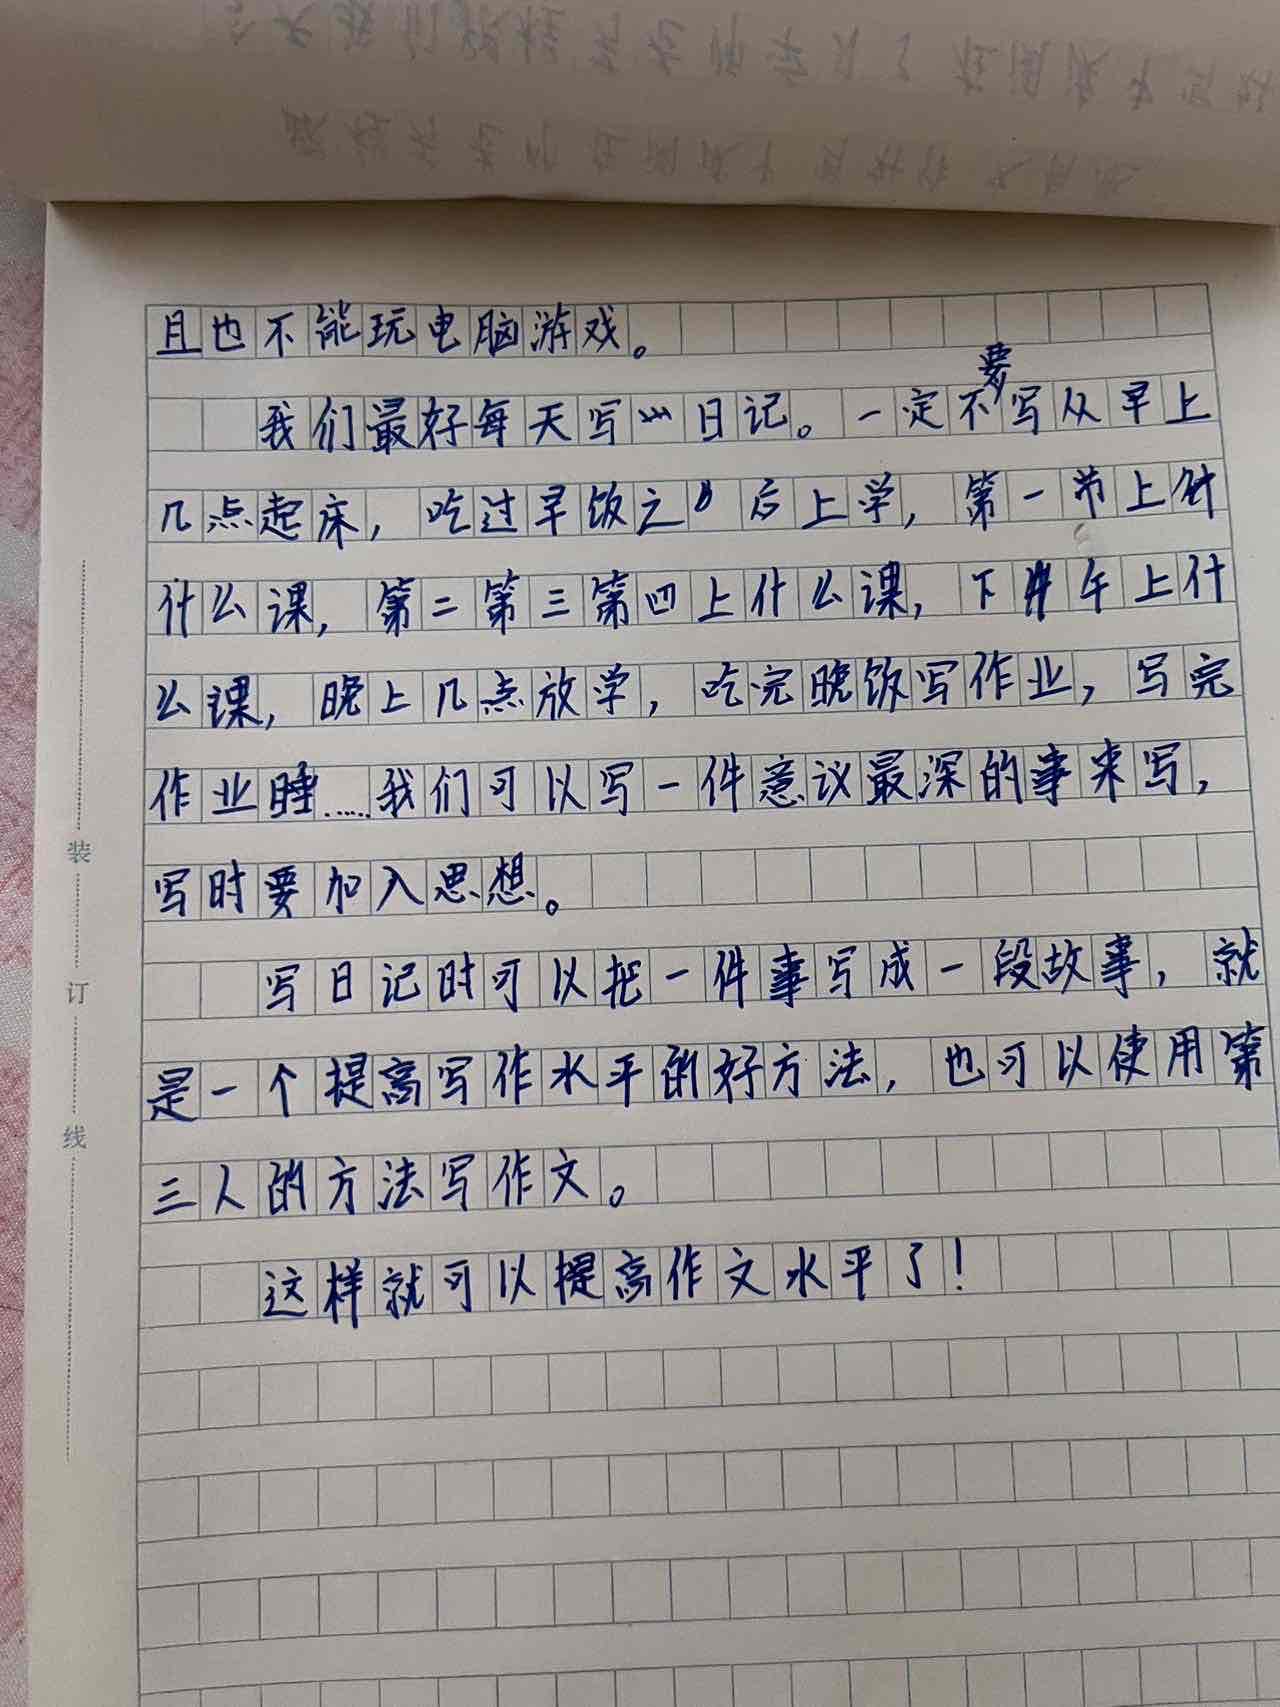 且也不能玩电脑游戏。
我们最好每天写日记。一定不要写从早上
几点起床，吃过早饭之后上学，第一节上什
什么课，第二第三第四上什么课，下午上什
么课，晚上几点放学，吃完晚饭写作业，写完
作业睡……我们可以写一件意议最深的事来写，
写时要加入思想。
写日记时可以把一件事写成一段故事，就
是一个提高写作水平的好方法，也可以使用第
三人的方法写作文。
这样就可以提高作文水平了！
装
订
线